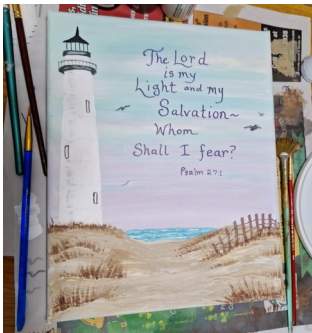 The Lord
is my
Light and my
Salvation~
Whom
Shall I fear?
Psalm 27:1